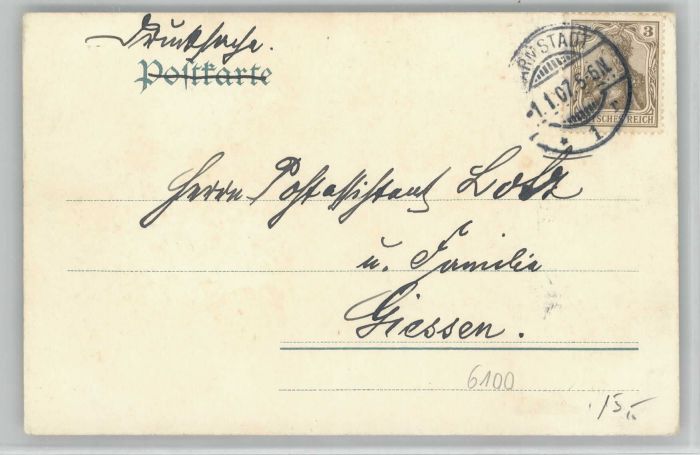 Drucksache.
Postkarte
3
DARMSTADT
1.1.07.5-6N.
DEUTSCHES REICH
* 1
Herrn Postassistent Lotz
u. Familie
Giessen.
6100